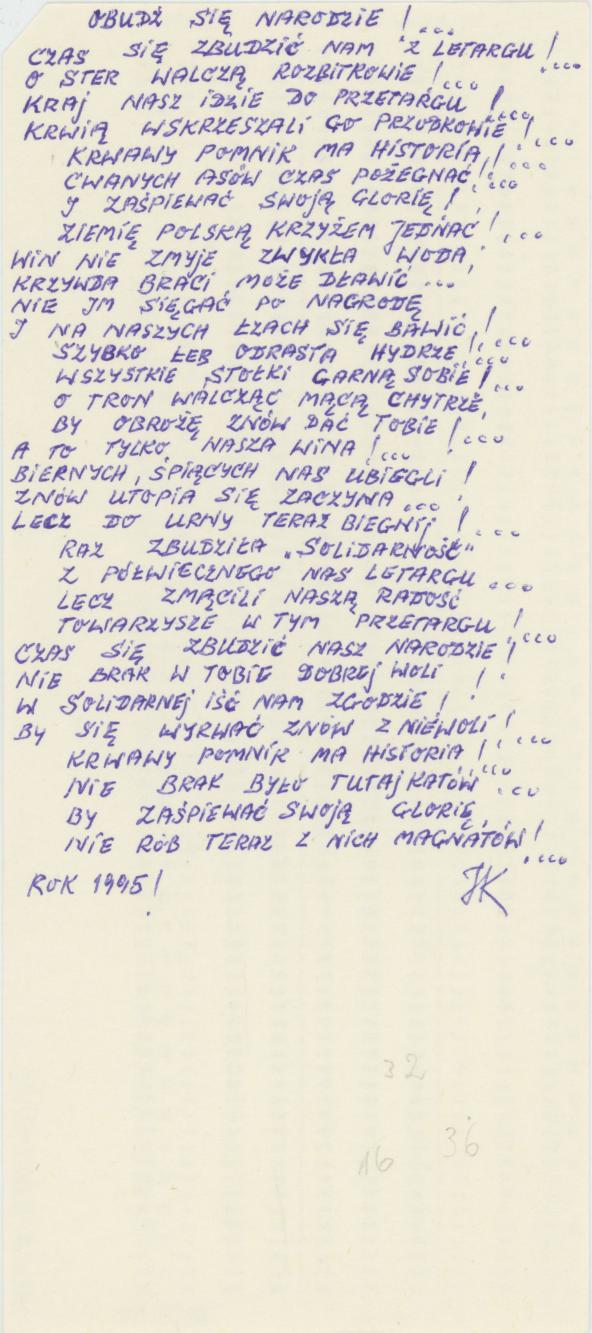 OBUDŹ SIĘ NARODZIE !...
CZAS SIĘ ZBUDZIĆ NAM Z LETARGU !...
O STER WALCZĄ ROZBITKOWIE !...
KRAJ NASZ IDZIE DO PRZETARGU !...
KRWIĄ WSKRZESZALI GO PRZODKOWIE !...
KRWAWY POMNIK MA HISTORIA, !...
CWANYCH ASÓW CZAS POŻEGNAĆ !...
I ZAŚPIEWAĆ SWOJĄ GLORIĘ !
ZIEMIĘ POLSKĄ KRZYŻEM JEDNAĆ !...
WIN NIE ZMYJE ZWYKŁA WODA,
KRZYWDA BRACI MOŻE DŁAWIĆ ...
NIE IM SIĘGAĆ PO NAGRODĘ
I NA NASZYCH ŁZACH SIĘ BAWIĆ !
SZYBKO ŁEB ODRASTA HYDRZE !...
WSZYSTKIE STOŁKI GARNĄ SOBIE !...
O TRON WALCZĄC MĄCĄ CHYTRZE,
BY OBROŻĘ ZNÓW DAĆ TOBIE !...
A TO TYLKO NASZA WINA !...
BIERNYCH, ŚPIĄCYCH NAS UBIEGLI !
ZNÓW UTOPIA SIĘ ZACZYNA ...
LECZ DO URNY TERAZ BIEGNIJ !...
RAZ ZBUDZIŁA „SOLIDARNOŚĆ"
Z PÓŁWIECZNEGO NAS LETARGU ...
LECZ ZMĄCILI NASZĄ RADOŚĆ
TOWARZYSZE W TYM PRZETARGU !...
CZAS SIĘ ZBUDZIĆ NASZ NARODZIE !
NIE BRAK W TOBIE DOBREJ WOLI !
W SOLIDARNEJ IŚĆ NAM ZGODZIE !
BY SIĘ WYRWAĆ ZNÓW Z NIEWOLI !...
KRWAWY POMNIK MA HISTORIA !...
NIE BRAK BYŁO TUTAJ KATÓW ...
BY ZAŚPIEWAĆ SWOJĄ GLORIĘ,
NIE RÓB TERAZ Z NICH MAGNATÓW !...
ROK 1995 !
JK
32
16 36